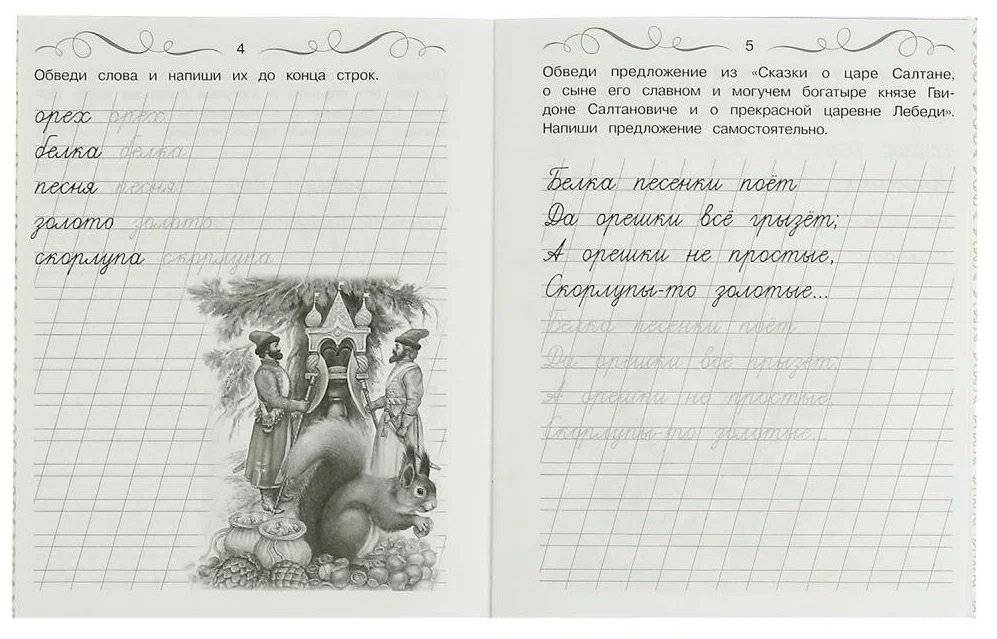 4
Обведи слова и напиши их до конца строк.
орех орех
белка белка
песня песня
золото золото
скорлупа скорлупа
5
Обведи предложение из «Сказки о царе Салтане,
о сыне его славном и могучем богатыре князе Гви-
доне Салтановиче и о прекрасной царевне Лебеди».
Напиши предложение самостоятельно.
Белка песенки поёт
Да орешки всё грызёт;
А орешки не простые,
Скорлупы-то золотые...
Белка песенки поёт
Да орешки всё грызёт;
А орешки не простые,
Скорлупы-то золотые...